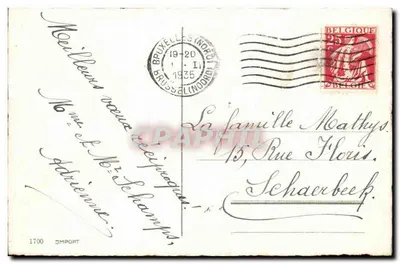 Meilleurs vœux réciproques.
Mme et Mr Schamps,
Adrienne.
BRUXELLES (NORD)
19-20
1-I
1935
BRUSSEL (NOORD)
BELGIQUE
25c
BELGIË
La famille Mathys.
15, Rue Floris.
Schaerbeek.
PRAHVI
1700 IMPORT